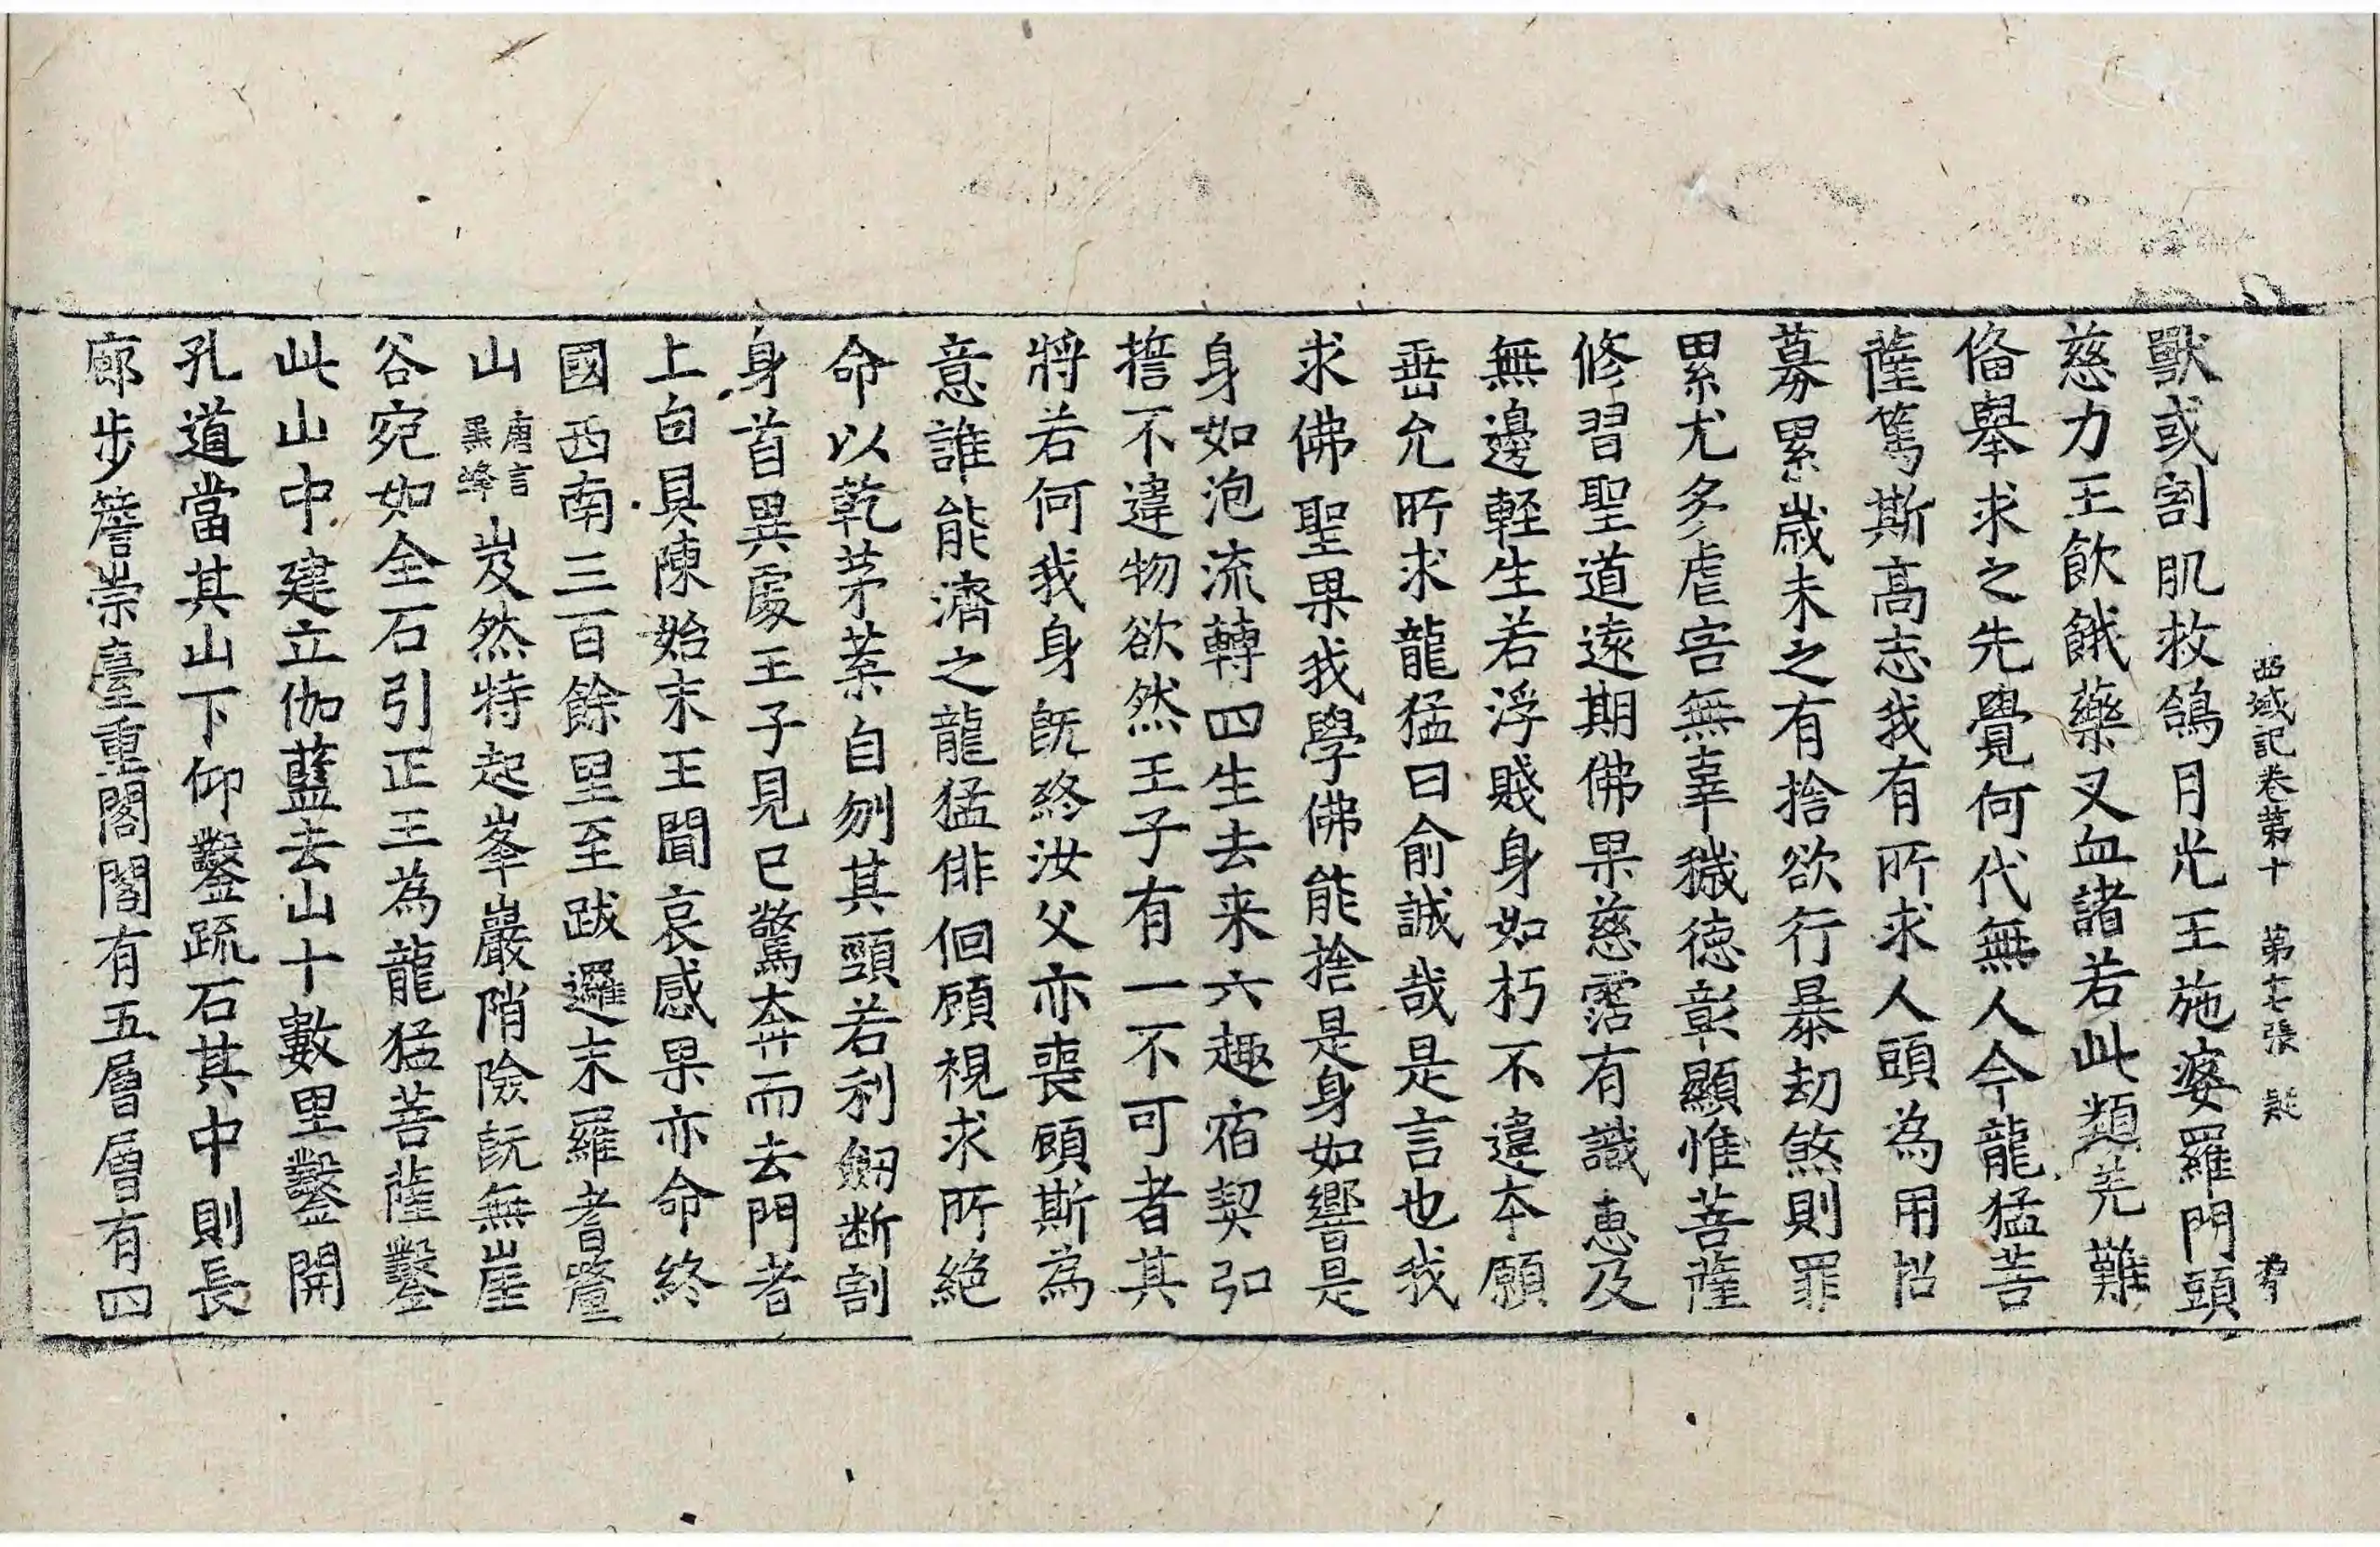 西域記卷第十 第十七張 疑
獸或割肌救鴿月光王施婆羅門頭
慈力王飲餓藥叉血諸若此類羌難
俻舉求之先覺何代無人今龍猛菩
薩篤斯高志我有所求人頭為用招
募累歲未之有捨欲行暴劫煞則罪
累尤多虐害無辜穢徳彰顯惟菩薩
修習聖道遠期佛果慈霑有識恵及
無邊輕生若浮賤身如朽不違夲願
垂允所求龍猛曰俞誠哉是言也我
求佛聖果我學佛能捨是身如響是
身如泡流轉四生去来六趣宿契弘
誓不違物欲然王子有一不可者其
將若何我身既終汝父亦喪顧斯為
意誰能濟之龍猛俳佪顧視求所絕
命以乾茅葉自刎其頸若利劒断割
身首異處王子見已驚奔而去門者
上白具陳始末王聞哀感果亦命終
國西南三百餘里至跋邏末羅耆釐
山唐言黑峰岌然特起峯巖隋險旣無崖
谷宛如全石引正王為龍猛菩薩鑿
此山中建立伽藍去山十數里鑿開
孔道當其山下仰鑿疏石其中則長
廊步簷崇臺重閣閣有五層層有四